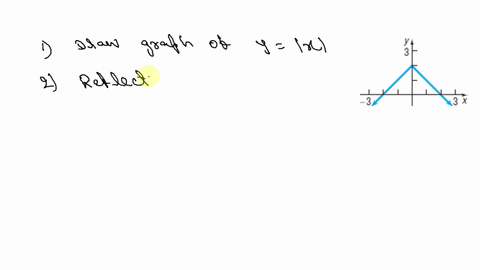 1) Draw graph of y = |x|
2) Reflect
y
3
-3
3 x